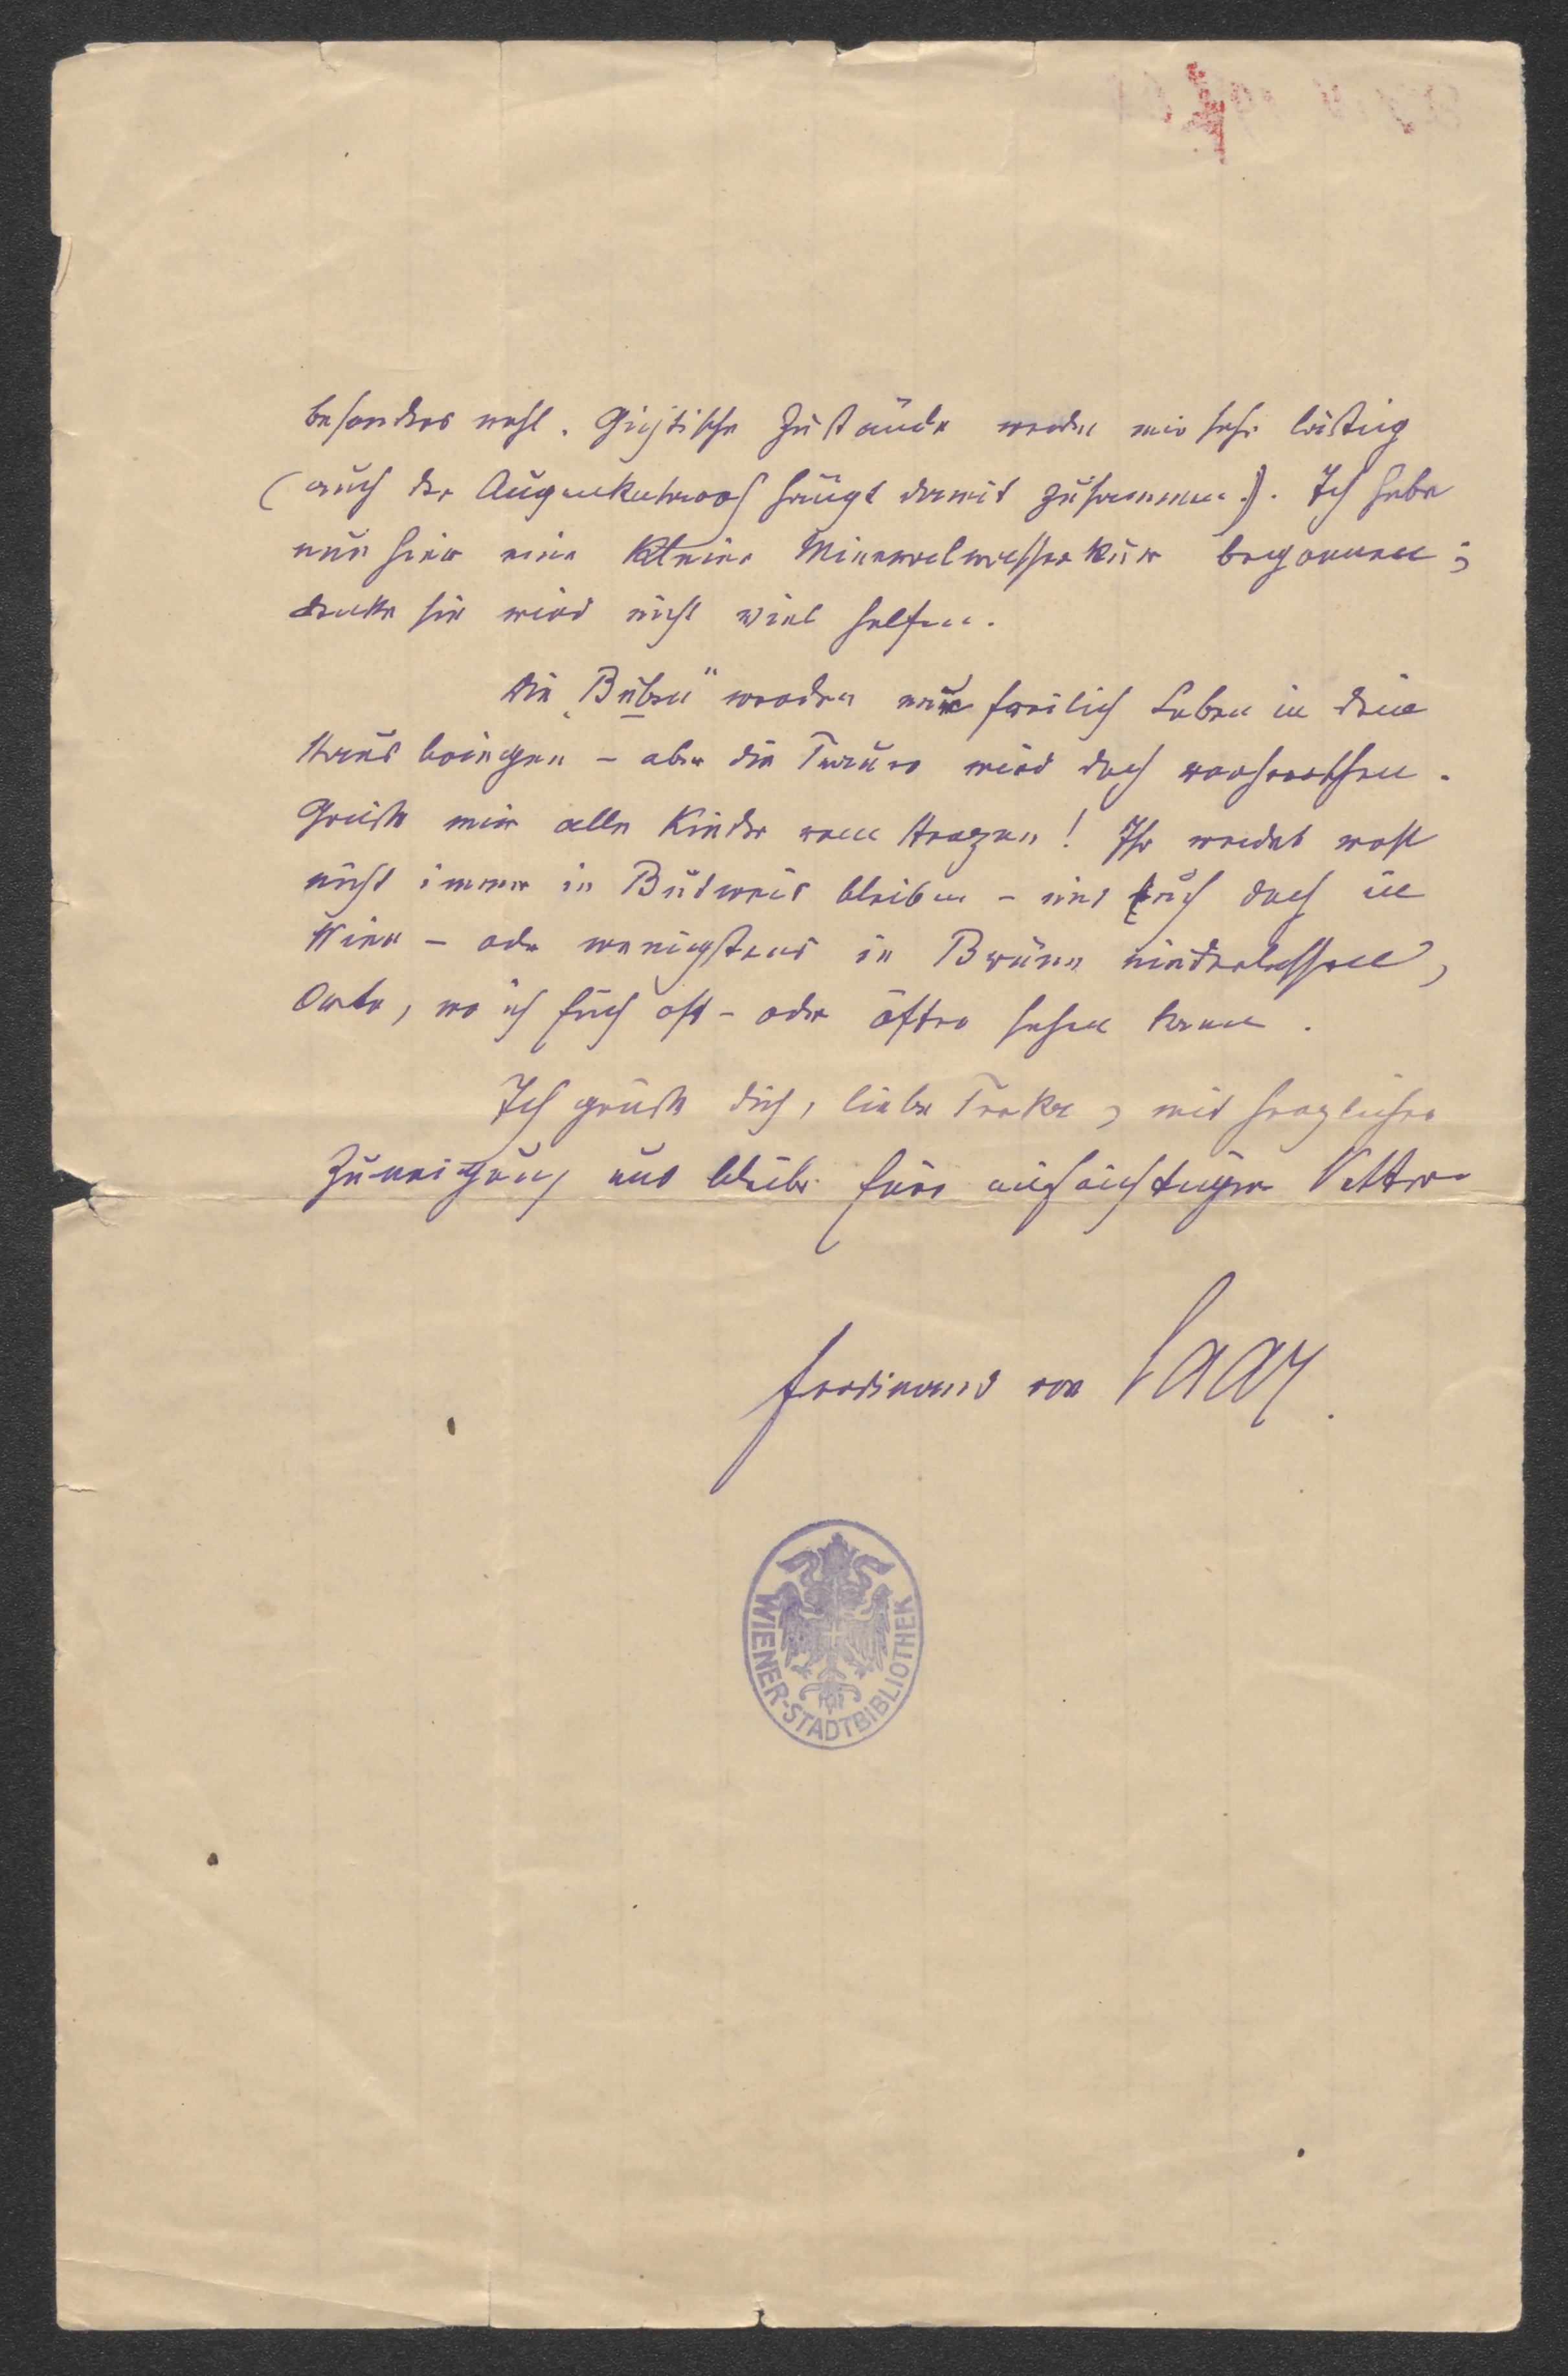 besonders wohl. Gichtische Zustände werden mir sehr lästig
(auch der Augenkatarrh hängt damit zusammen.). Ich habe
nun hier eine kleine Mineralwasserkur begonnen;
denke sie wird nicht viel helfen.
Die „Buben“ werden nun freilich Leben in dein
Haus bringen – aber die Trauer wird doch vorherrschen.
Grüße mir alle Kinder vom Herzen! Ihr werdet wohl
nicht immer in Budweis bleiben – und Euch doch in
Wien – oder wenigstens in Brünn niederlassen,
Orte, wo ich Euch oft – oder öfter sehen kann.
Ich grüße dich, liebe, mit herzlicher
Zuneigung und bleibe Euer aufrichtiger Vetter
Ferdinand von Saar.
WIENER-STADTBIBLIOTHEK